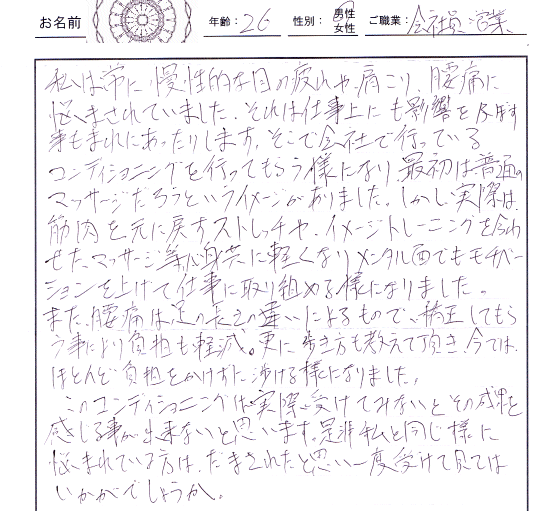 お名前 年齢：26 性別： 男性 女性 ご職業：会社員 営業
私は常に慢性的な目の疲れや肩こり、腰痛に
悩まされていました。それは仕事上にも影響を及ぼす
事もまれにあったりします。そこで会社で行っている
コンディショニングを行ってもらう様になり最初は普通の
マッサージだろうというイメージがありました。しかし実際は
筋肉を元に戻すストレッチや、イメージトレーニングを合わ
せたマッサージ等心身共に軽くなりメンタル面でもモチベー
ションを上げて仕事に取り組める様になりました。
また、腰痛は足の長さの違いによるもので、補正してもら
う事により負担も軽減。更に歩き方も教えて頂き、今では、
ほとんど負担をかけずに歩ける様になりました。
このコンディショニングは実際受けてみないとその成果を
感じる事が出来ないと思います。是非私と同じ様に
悩まれている方は、だまされたと思い一度受けて見ては
いかがでしょうか。